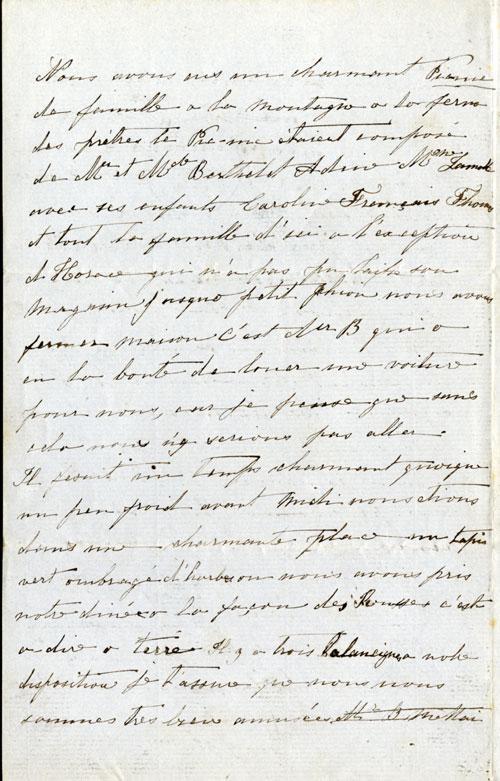 Nous avons eus un charmant Picnic
de famille a la montagne a la ferme
des prêtres le Picnic étaient composé
de Mr et Mde Berthelet Adine Mme Lamot
avec ses enfants Caroline Français Thom
et tout la famille d'ici a l'exception
d Horace qui n'a pas pu laisse son
magasin jusque petit Phion nous avons
fermer maison c'est Mr B qui a
eu la bonté de louer une voiture
pour nous, car je pense que sans
cela nous n'y serions pas aller.
Il fesait un temps charmant quoique
un peu froid avant midi nous étions
dans une charmante place un tapis
vert ombragé d'harbre ou nous avons pris
notre diné a la façon des Russes c'est
a dire a terre Il y a trois Balancignes a notre
disposition je t'assure que nous nous
sommes très bien amusées